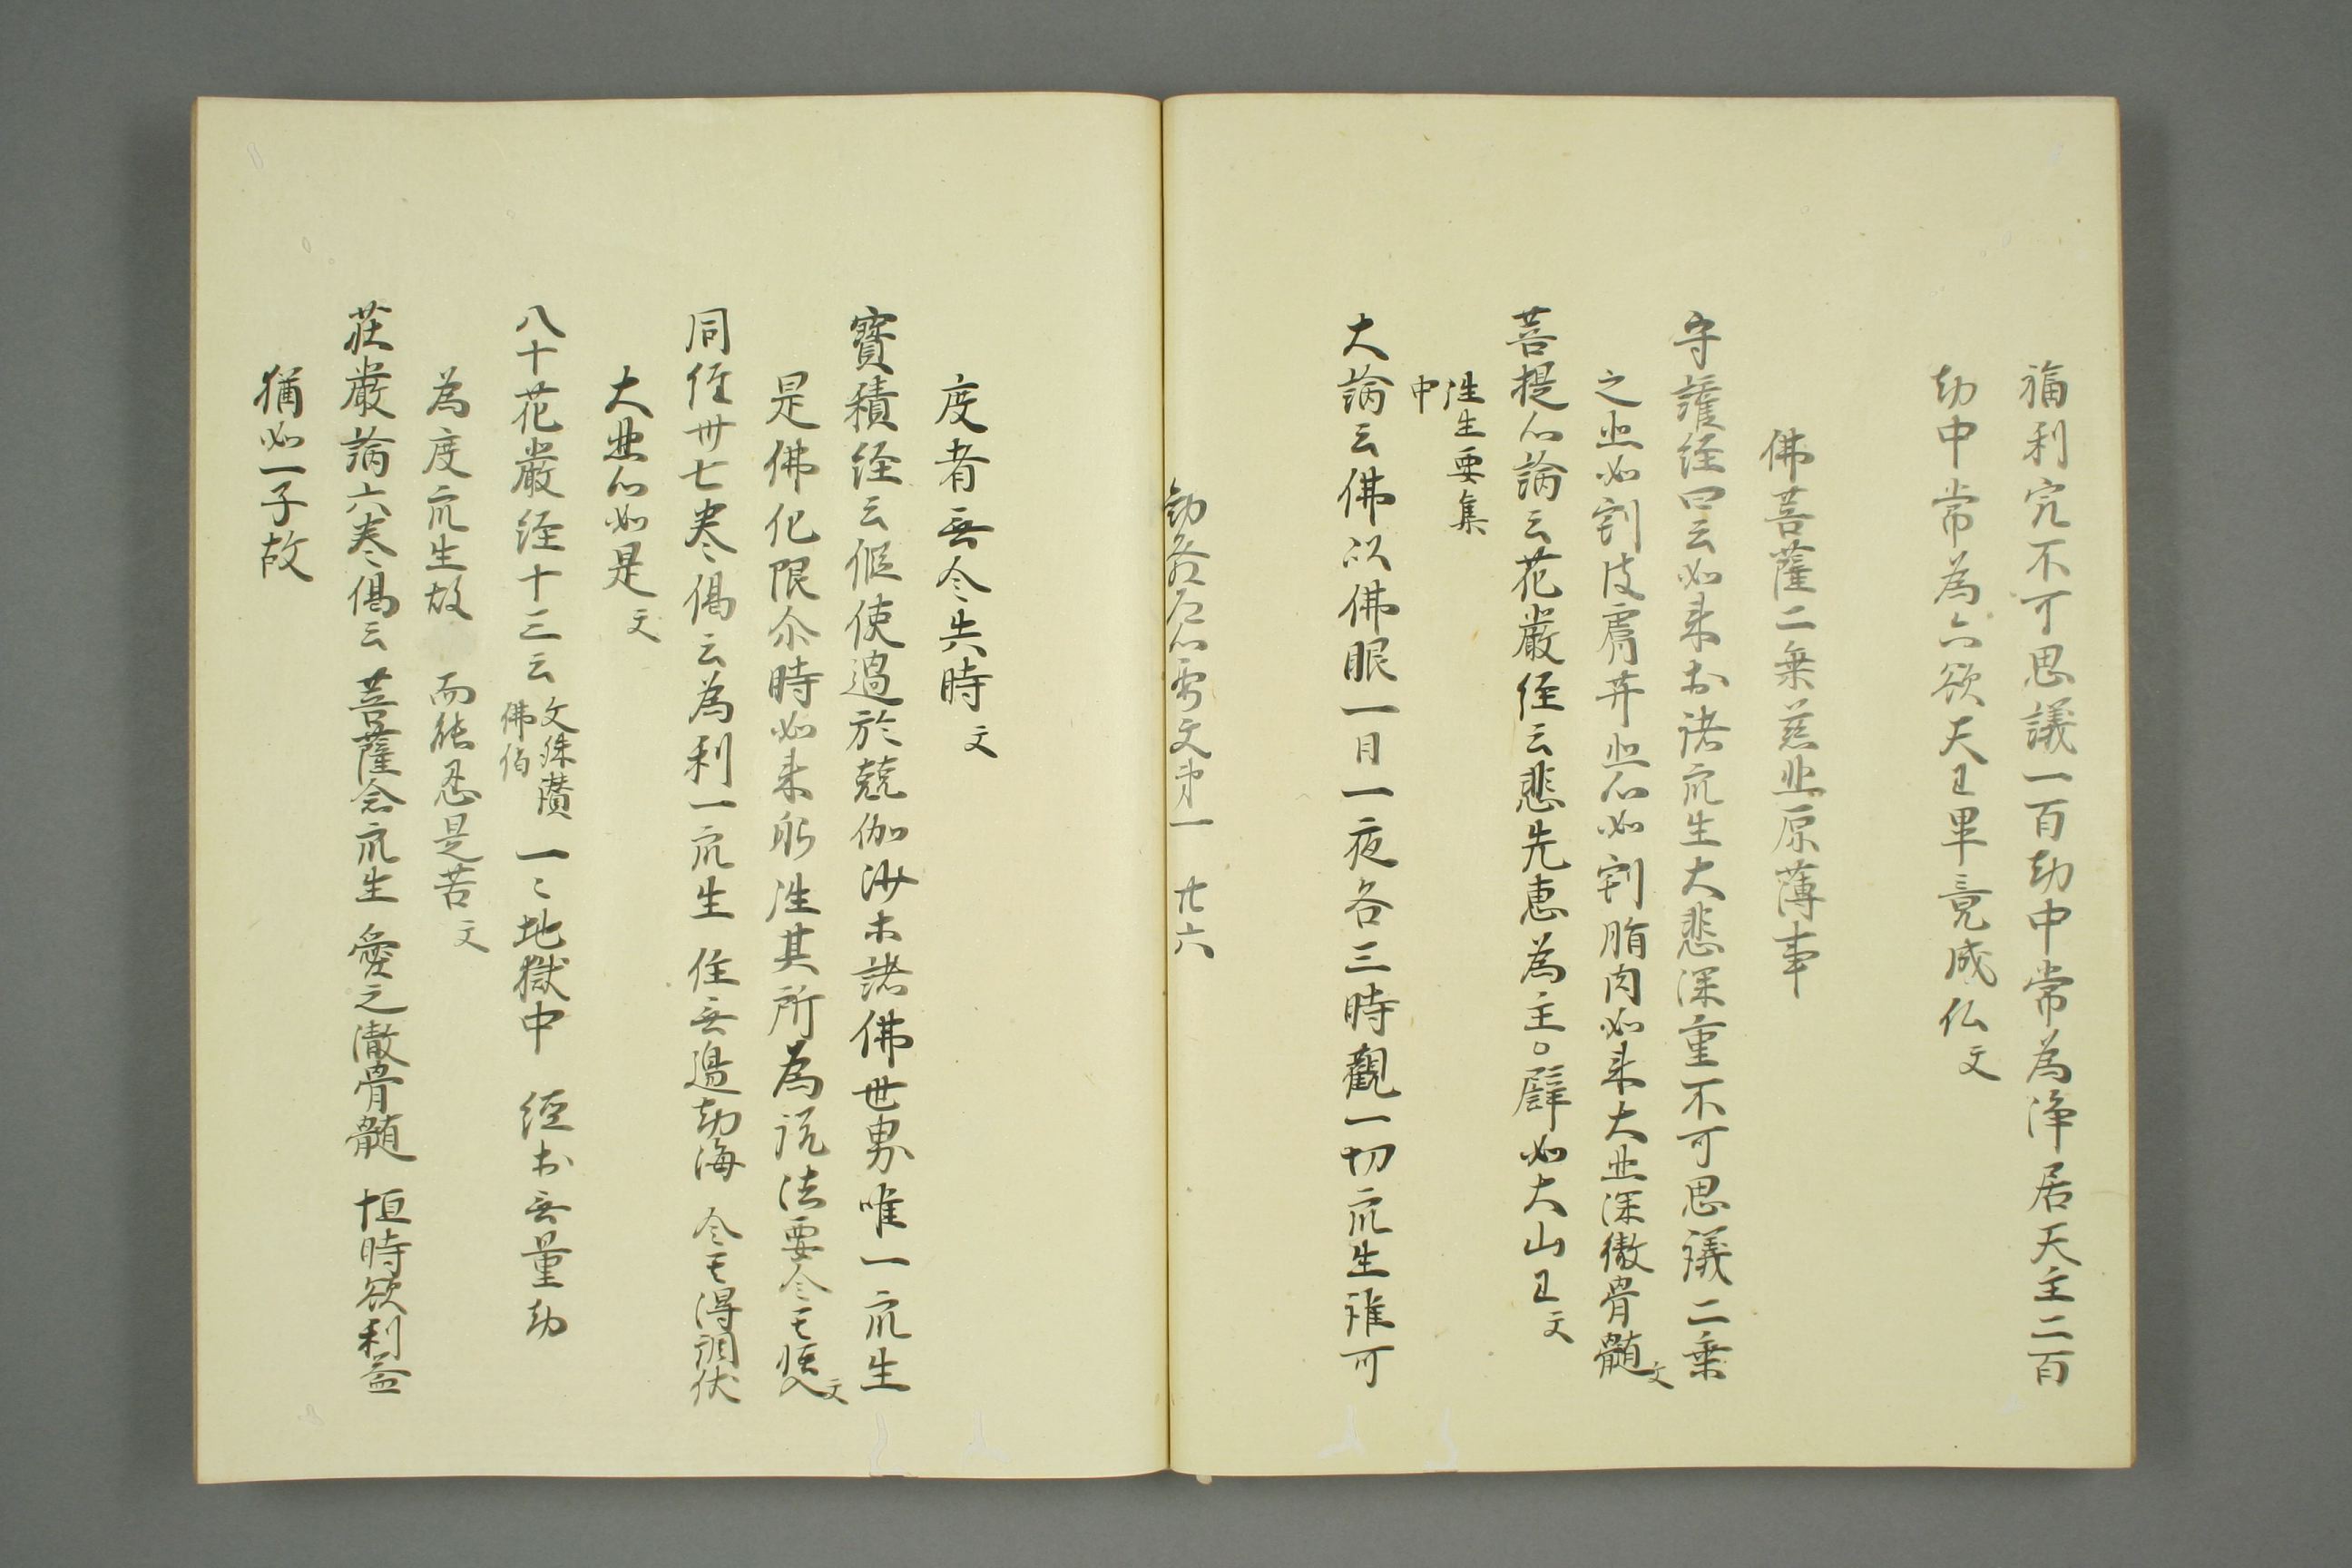 福利究不可思議一百劫中常為淨居天主二百
劫中常為六欲天王畢竟成仏文
佛菩薩二乗慈悲原薄事
守護経四云如来於諸衆生大悲深重不可思議二乗
之悲如割皮膚菩薩悲心如割脂肉如来大悲深徹骨髄文
菩提心論云花厳経云悲先恵為主。譬如大山王文
往生要集
中
大論云佛以佛眼一日一夜各三時觀一切衆生誰可
文第一 廿六
度者無令失時文
寶積経云假使過於兢伽沙末諸佛世界唯一衆生
是佛化限尒時如来躬往其所為説法要令其悟入文
同経卅七巻偈云為利一衆生 住無邊劫海 令其得調伏
大悲心如是文
八十花嚴経十三云 文殊讃
佛偈
一〻地獄中 経於無量劫
為度衆生故 而能忍是苦文
荘嚴論六巻偈云 菩薩念衆生 愛之徹骨髄 恒時欲利益
猶如一子故